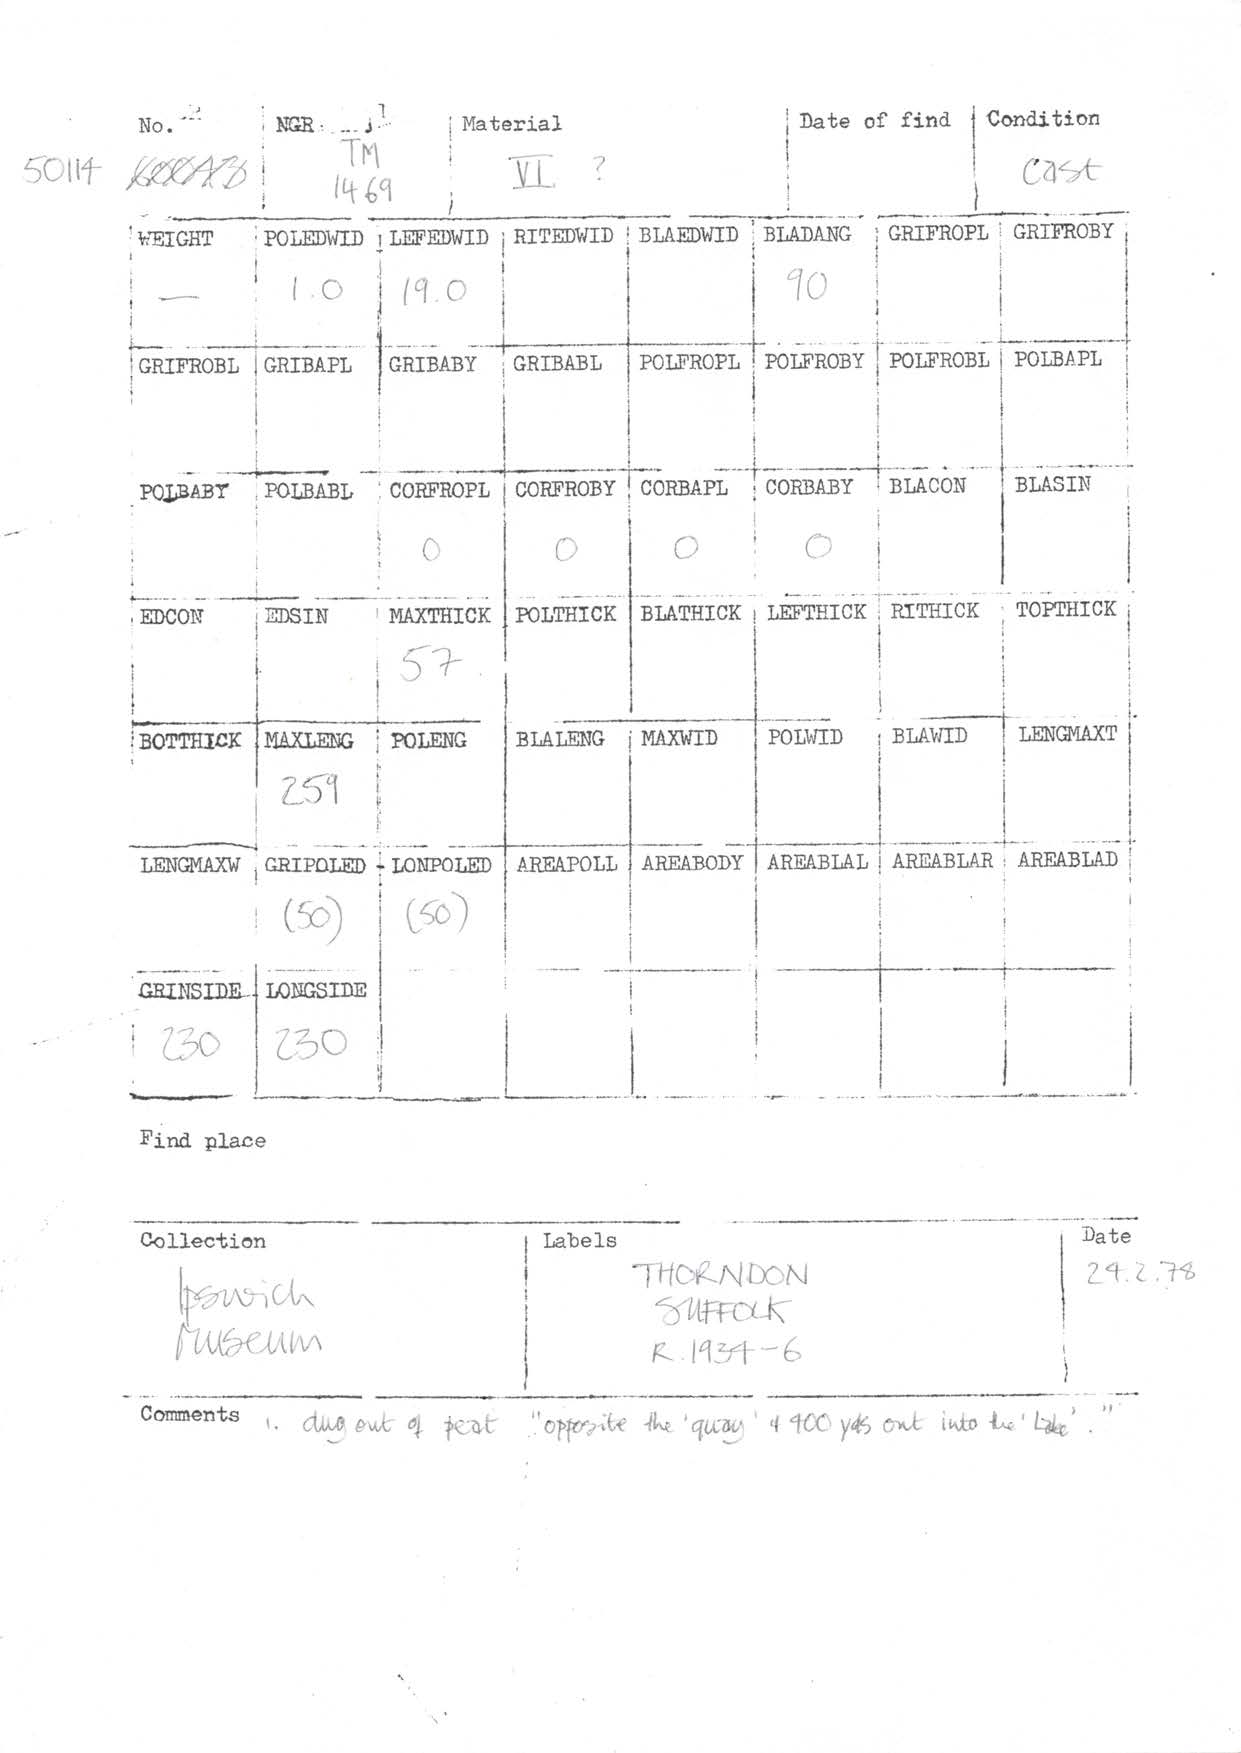 No. NGR Material Date of find Condition
50114 TM VI ? Cast
1469
WEIGHT POLEDWID LEFEDWID RITEDWID BLAEDWID BLADANG GRIFROPL GRIFROBY
— 1.0 19.0 90
GRIFROBL GRIBAPL GRIBABY GRIBABL POLFROPL POLFROBY POLFROBL POLBAPL
POLBABY POLBABL CORFROPL CORFROBY CORBAPL CORBABY BLACON BLASIN
0 0 0 0
EDCON EDSIN MAXTHICK POLTHICK BLATHICK LEFTHICK RITHICK TOPTHICK
57
BOTTHICK MAXLENG POLENG BLALENG MAXWID POLWID BLAWID LENGMAXT
259
LENGMAXW GRIPOLED LONPOLED AREAPOLL AREABODY AREABLAL AREABLAR AREABLAD
(50) (50)
GRINSIDE LONGSIDE
230 230
Find place
Collection Labels Date
Ipswich THORNDON 24.2.78
Museum SUFFOLK
R.1934-6
Comments 1. dug out of peat "opposite the 'quay' & 400 yds out into the 'Lake'."